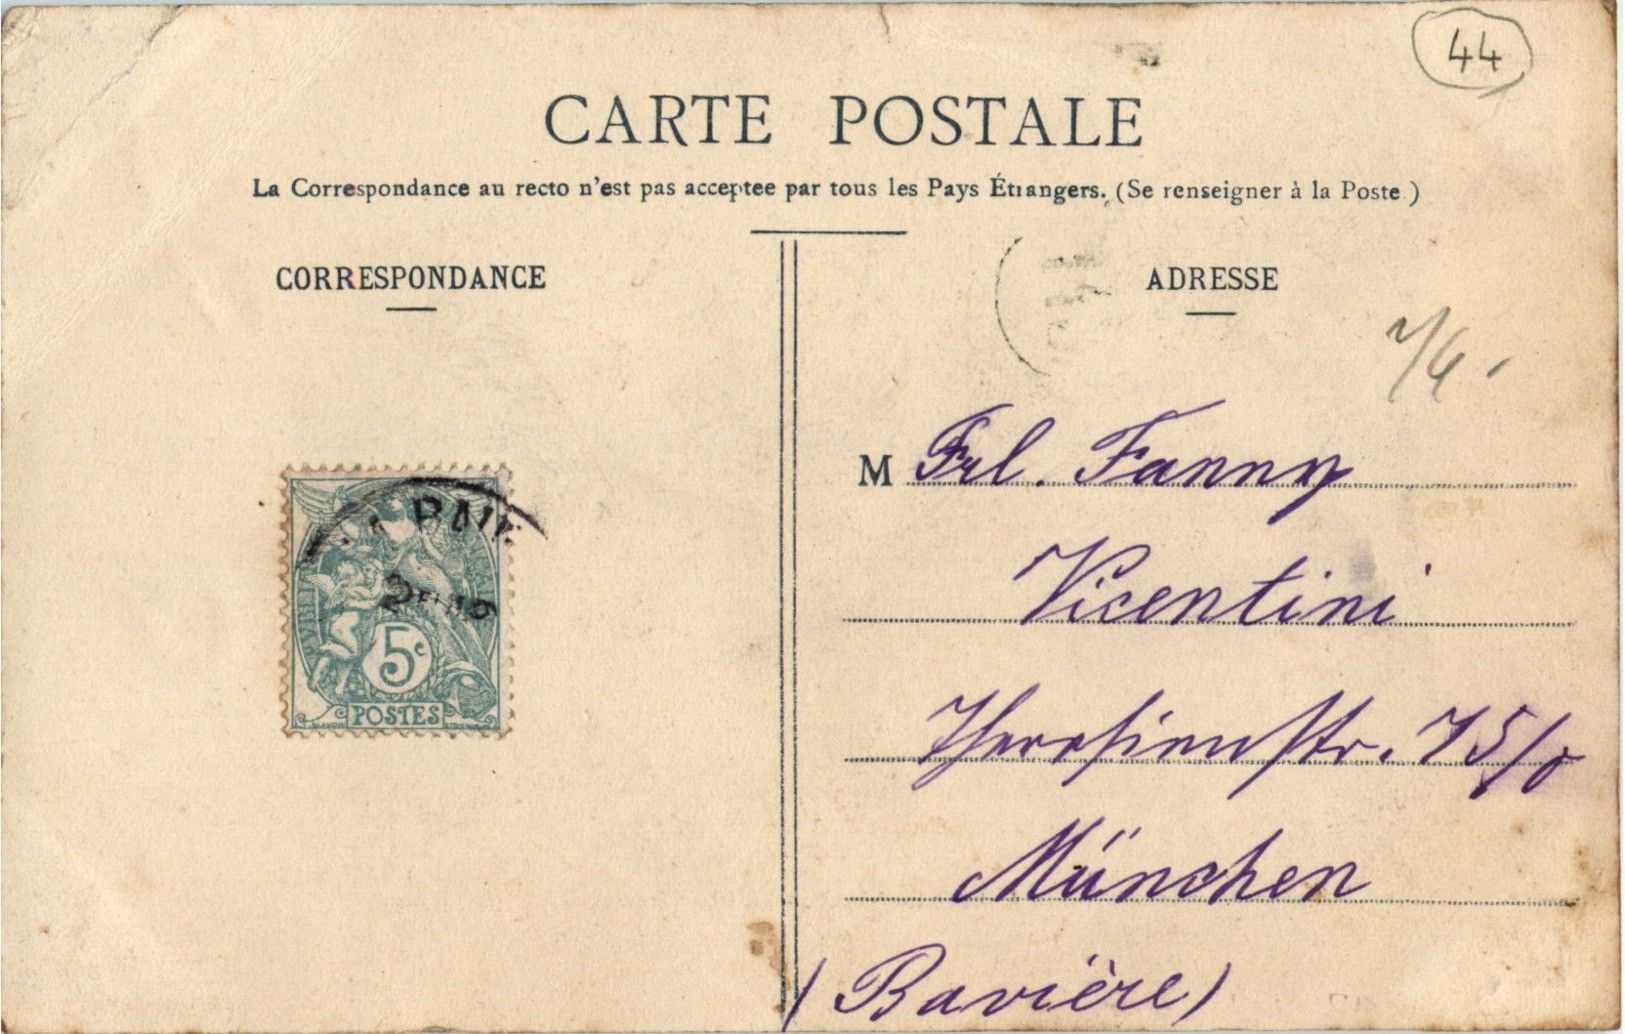 44
CARTE POSTALE
La Correspondance au recto n'est pas acceptee par tous les Pays Étrangers. (Se renseigner à la Poste)
CORRESPONDANCE
ADRESSE
M Frl. Fanny
Vicentini
Theresienstr. 75/0
München
(Bavière)
5c
POSTES